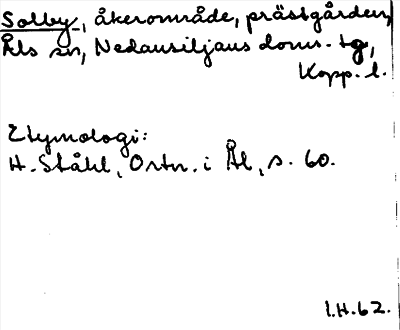 Solby, åkerområde, prästgården,
Åls sn, Nedansiljans doms. tg,
Kopp. l.
Etymologi:
H. Ståhl, Ortn. i Ål, s. 60.
I.H.62.